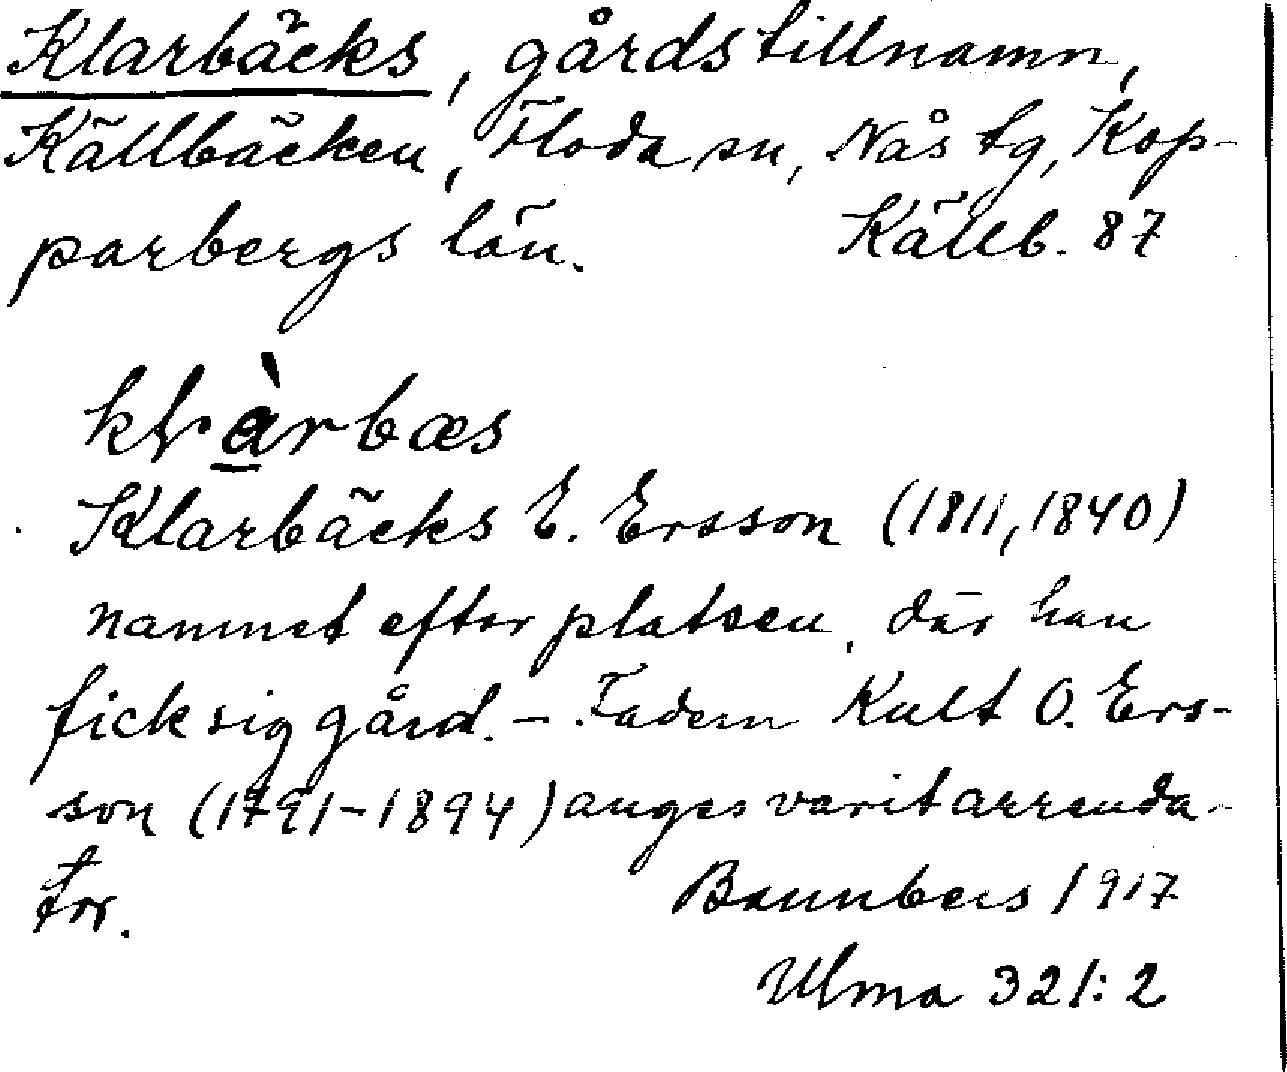 Klarbäcks, gårdstillnamn,
Källbäcken, Floda sn, Nås tg, Kop-
parbergs län. Källb. 87
klàrbæs
Klarbäcks E. Ersson (1811, 1840)
namnet efter platsen, där han
fick sig gård. – Fadern Kult O. Ers-
son (1791–1894) anges varit arrenda-
tor. 1917
Ulma 321:2